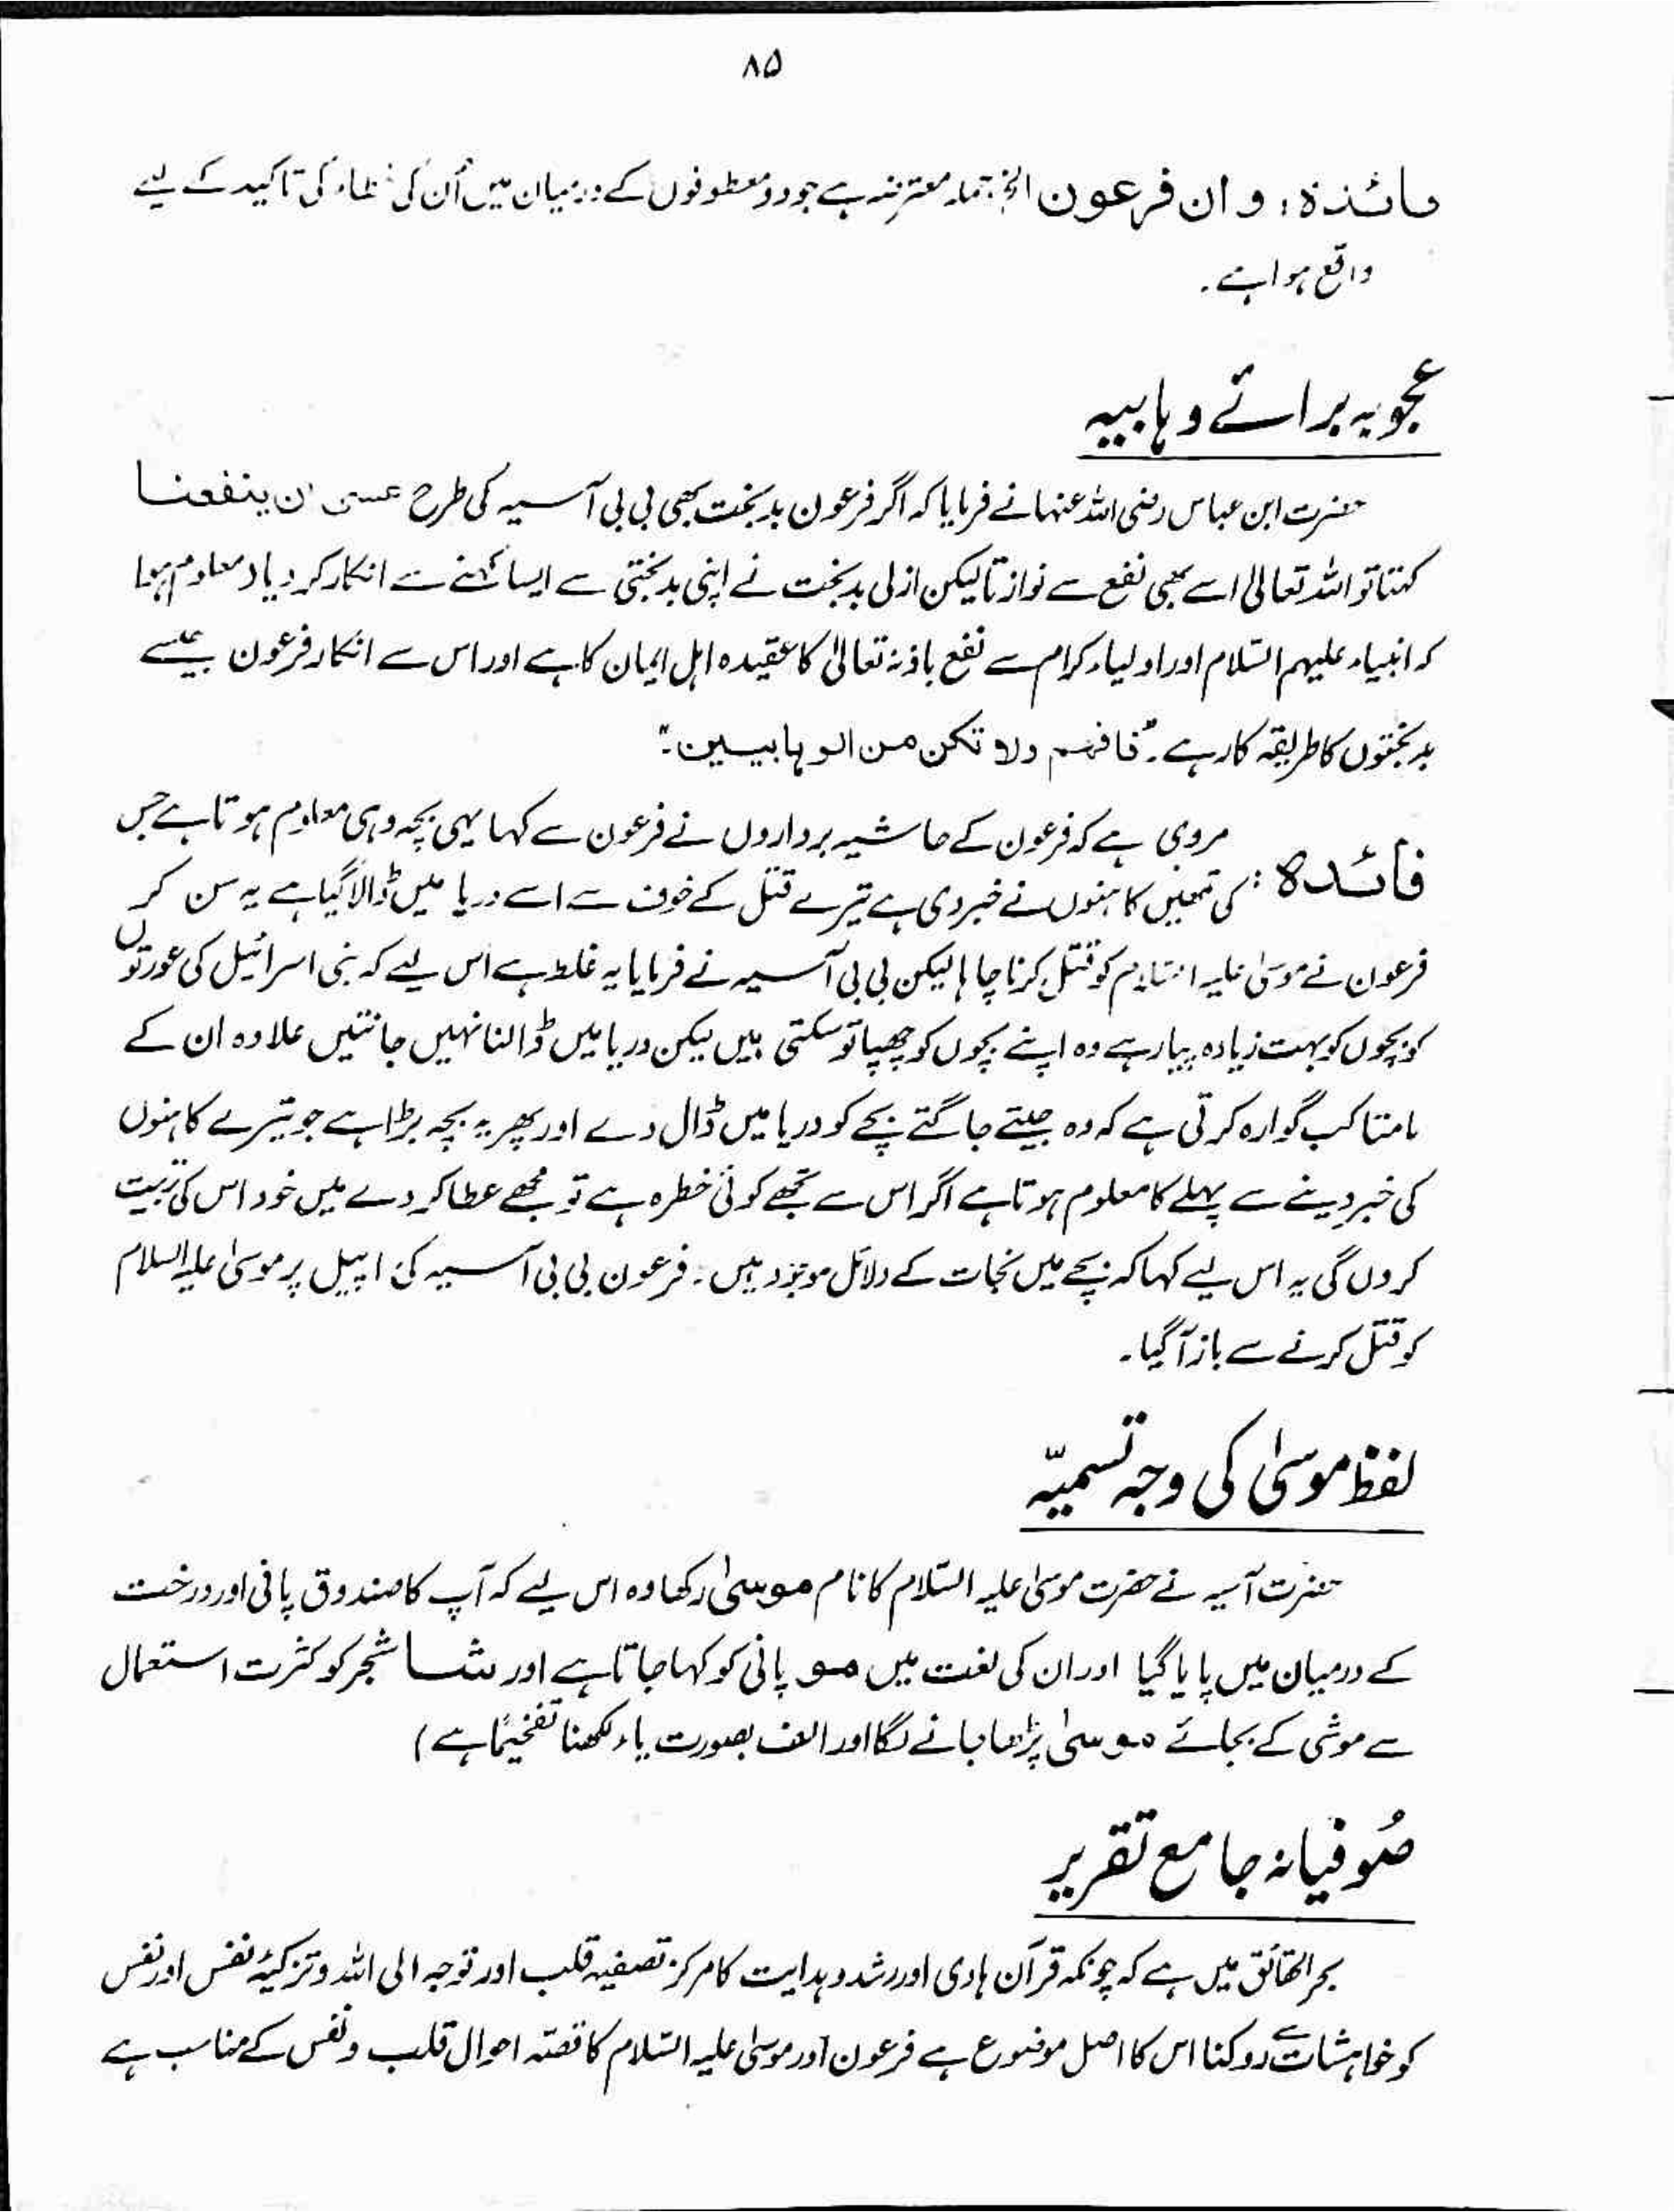 ۸۵
فائدہ : و ان فرعون الخ جملہ معترضہ ہے جو دو معطوفوں کے درمیان میں اُن کی خطاء کی تاکید کے لیے
واقع ہوا ہے ۔
عجوبہ برائے وہابیہ
حضرت ابن عباس رضی اللہ عنہا نے فرمایا کہ اگر فرعون بدبخت بھی بی بی آسیہ کی طرح عسیٰ ان ینفعنا
کہتا تو اللہ تعالیٰ اسے بھی نفع سے نوازتا لیکن ازلی بدبخت نے اپنی بدبختی سے ایسا کہنے سے انکار کر دیا (معلوم ہوا
کہ انبیاء علیہم السّلام اور اولیاء کرام سے نفع باذنہ تعالیٰ کا عقیدہ اہل ایمان کا ہے اور اس سے انکار فرعون جیسے
بدبختوں کا طریقہ کار ہے ۔ "فافہم ولا تکن من الوہابیین ۔"
فائدہ : مروی ہے کہ فرعون کے حاشیہ برداروں نے فرعون سے کہا یہی بچہ وہی معلوم ہوتا ہے جس
کی تمھیں کاہنوں نے خبر دی ہے تیرے قتل کے خوف سے اسے دریا میں ڈالا گیا ہے یہ سن کر
فرعون نے موسیٰ علیہ السّلام کو قتل کرنا چاہا لیکن بی بی آسیہ نے فرمایا یہ غلط ہے اس لیے کہ بنی اسرائیل کی عورتوں
کو بچوں کو بہت زیادہ پیار ہے وہ اپنے بچوں کو چھپا تو سکتی ہیں لیکن دریا میں ڈالنا نہیں جانتیں علاوہ ان کے
مامتا کب گوارہ کرتی ہے کہ وہ جیتے جاگتے بچے کو دریا میں ڈال دے اور پھر یہ بچہ بڑا ہے جو تیرے کاہنوں
کی خبر دینے سے پہلے کا معلوم ہوتا ہے اگر اس سے تجھے کوئی خطرہ ہے تو مجھے عطا کر دے میں خود اس کی تربیت
کروں گی یہ اس لیے کہا کہ بچے میں نجات کے دلائل موجود ہیں ۔ فرعون بی بی آسیہ کی اپیل پر موسیٰ علیہ السلام
کو قتل کرنے سے باز آ گیا ۔
لفظ موسیٰ کی وجہ تسمیّہ
حضرت آسیہ نے حضرت موسیٰ علیہ السّلام کا نام موسیٰ رکھا وہ اس لیے کہ آپ کا صندوق پانی اور درخت
کے درمیان میں پایا گیا اور ان کی لغت میں مو پانی کو کہا جاتا ہے اور شا شجر کو کثرت استعمال
سے موشی کے بجائے موسیٰ پڑھا جانے لگا اور الف بصورت یاء لکھنا تفخیمًا ہے )
صُوفیانہ جامع تقریر
بحر الحقائق میں ہے کہ چونکہ قرآن ہادی اور رشد و ہدایت کا مرکز تصفیہ قلب اور توجہ الی اللہ و تزکیۂ نفس اور نفس
کو خواہشات سے روکنا اس کا اصل موضوع ہے فرعون اور موسیٰ علیہ السّلام کا قصّہ احوال قلب و نفس کے مناسب ہے